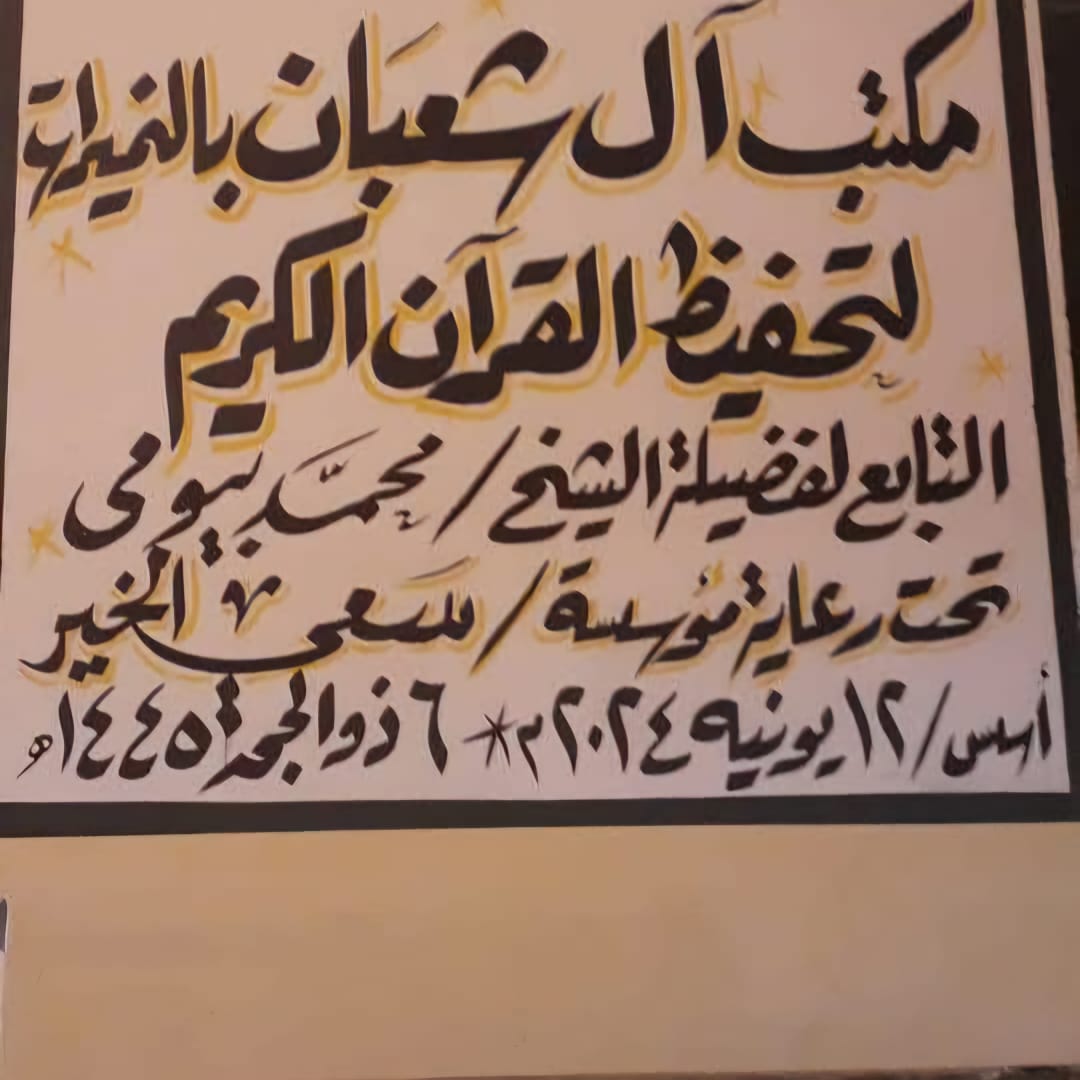 مكتب آل شعبان بالنميراب
لتحفيظ القرآن الكريم
التابع لفضيلة الشيخ / محمَّد بيومى
تحت رعاية مؤسسة / سعى الخير
أسس / ١٢ يونيه ٢٠٢٤م * ٦ ذو الحجة ١٤٤٥هـ